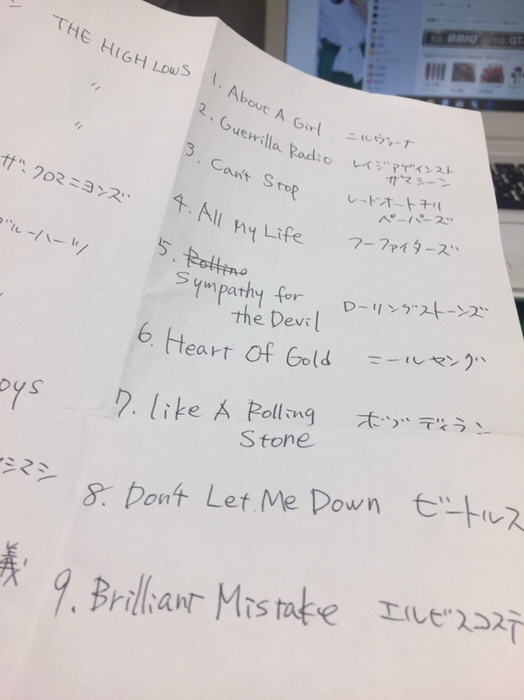 THE HIGH LOWS
〃
〃
ザ・クロマニヨンズ
ブルーハーツ
oys
シマシ
義
1. About A Girl ニルヴァーナ
2. Guerrilla Radio レイジアゲインスト
ザマシーン
3. Can't Stop レッドホットチリ
ペーパーズ
4. All My Life フーファイターズ
5. Rolling
Sympathy for
the Devil ローリングストーンズ
6. Heart Of Gold ニールヤング
7. like A Rolling
Stone ボブディラン
8. Don't Let Me Down ビートルズ
9. Brilliant Mistake エルビスコステ